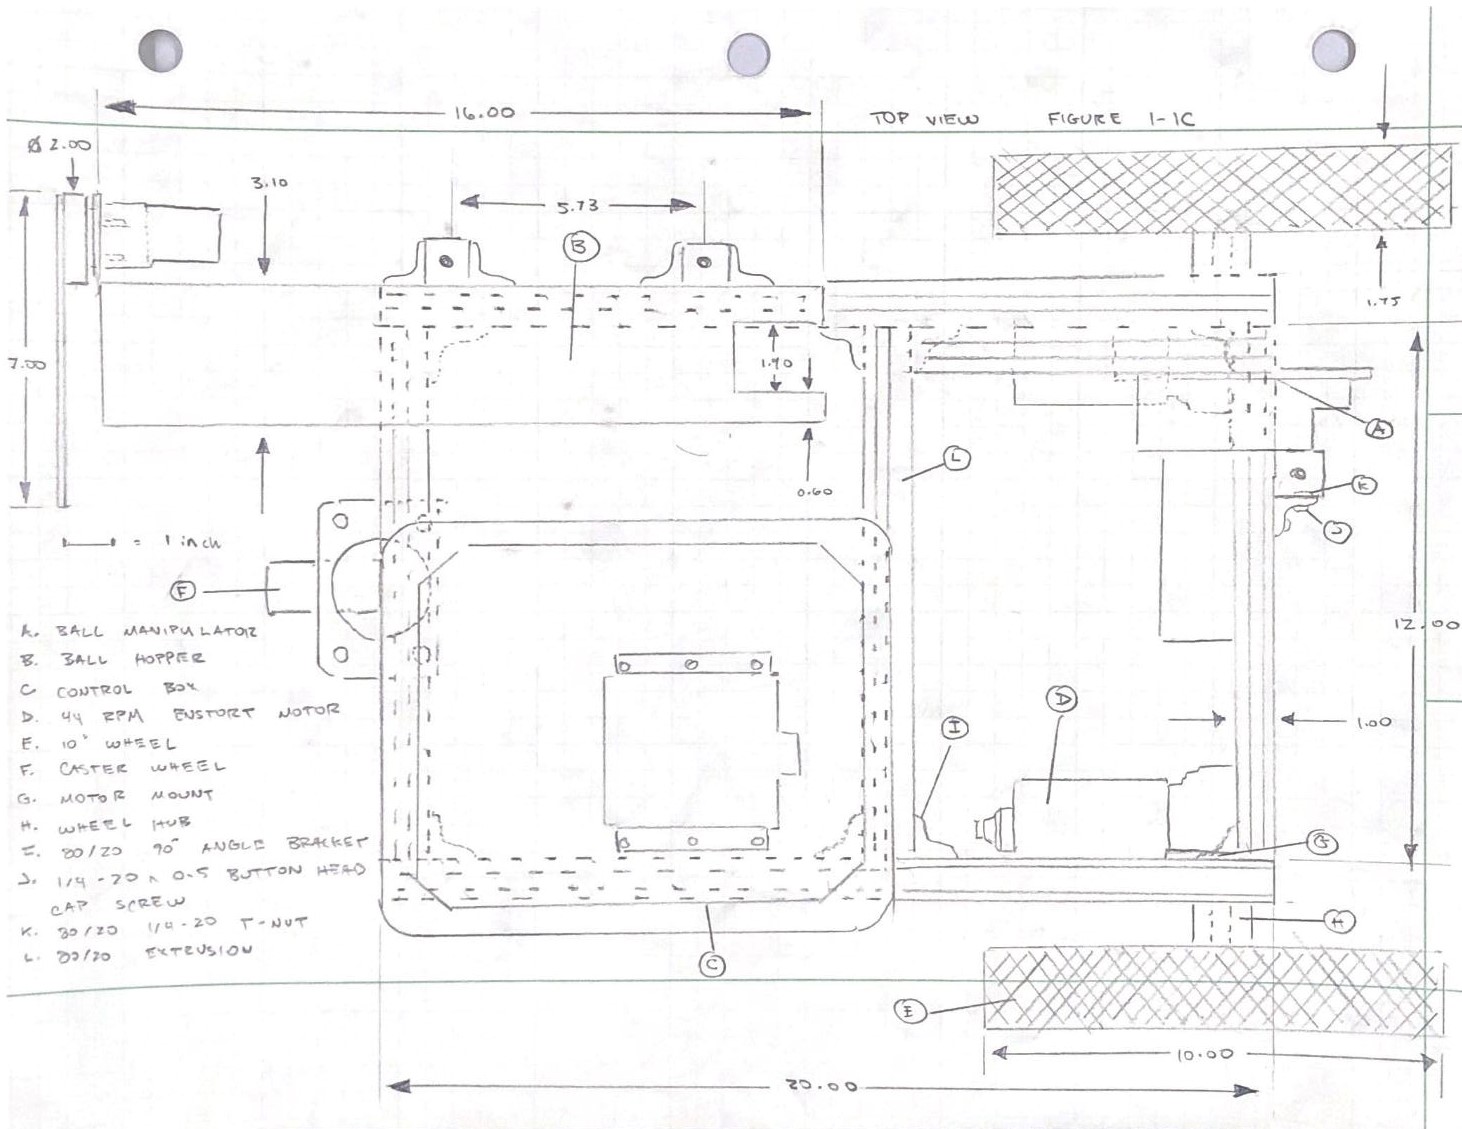 16.00
TOP VIEW FIGURE 1-1C
Ø 2.00
3.10
5.73
B
1.75
7.00
1.90
A
L
K
0.60
J
= 1 inch
F
12.00
A. BALL MANIPULATOR
B. BALL HOPPER
C CONTROL BOX
D. 44 RPM ENSTORT MOTOR
E. 10" WHEEL
F. CASTER WHEEL
G. MOTOR MOUNT
H. WHEEL HUB
I. 80/20 90° ANGLE BRACKET
J. 1/4-20 x 0.5 BUTTON HEAD
CAP SCREW
K. 80/20 1/4-20 T-NUT
L. 80/20 EXTRUSION
D
I
1.00
G
H
C
E
10.00
20.00